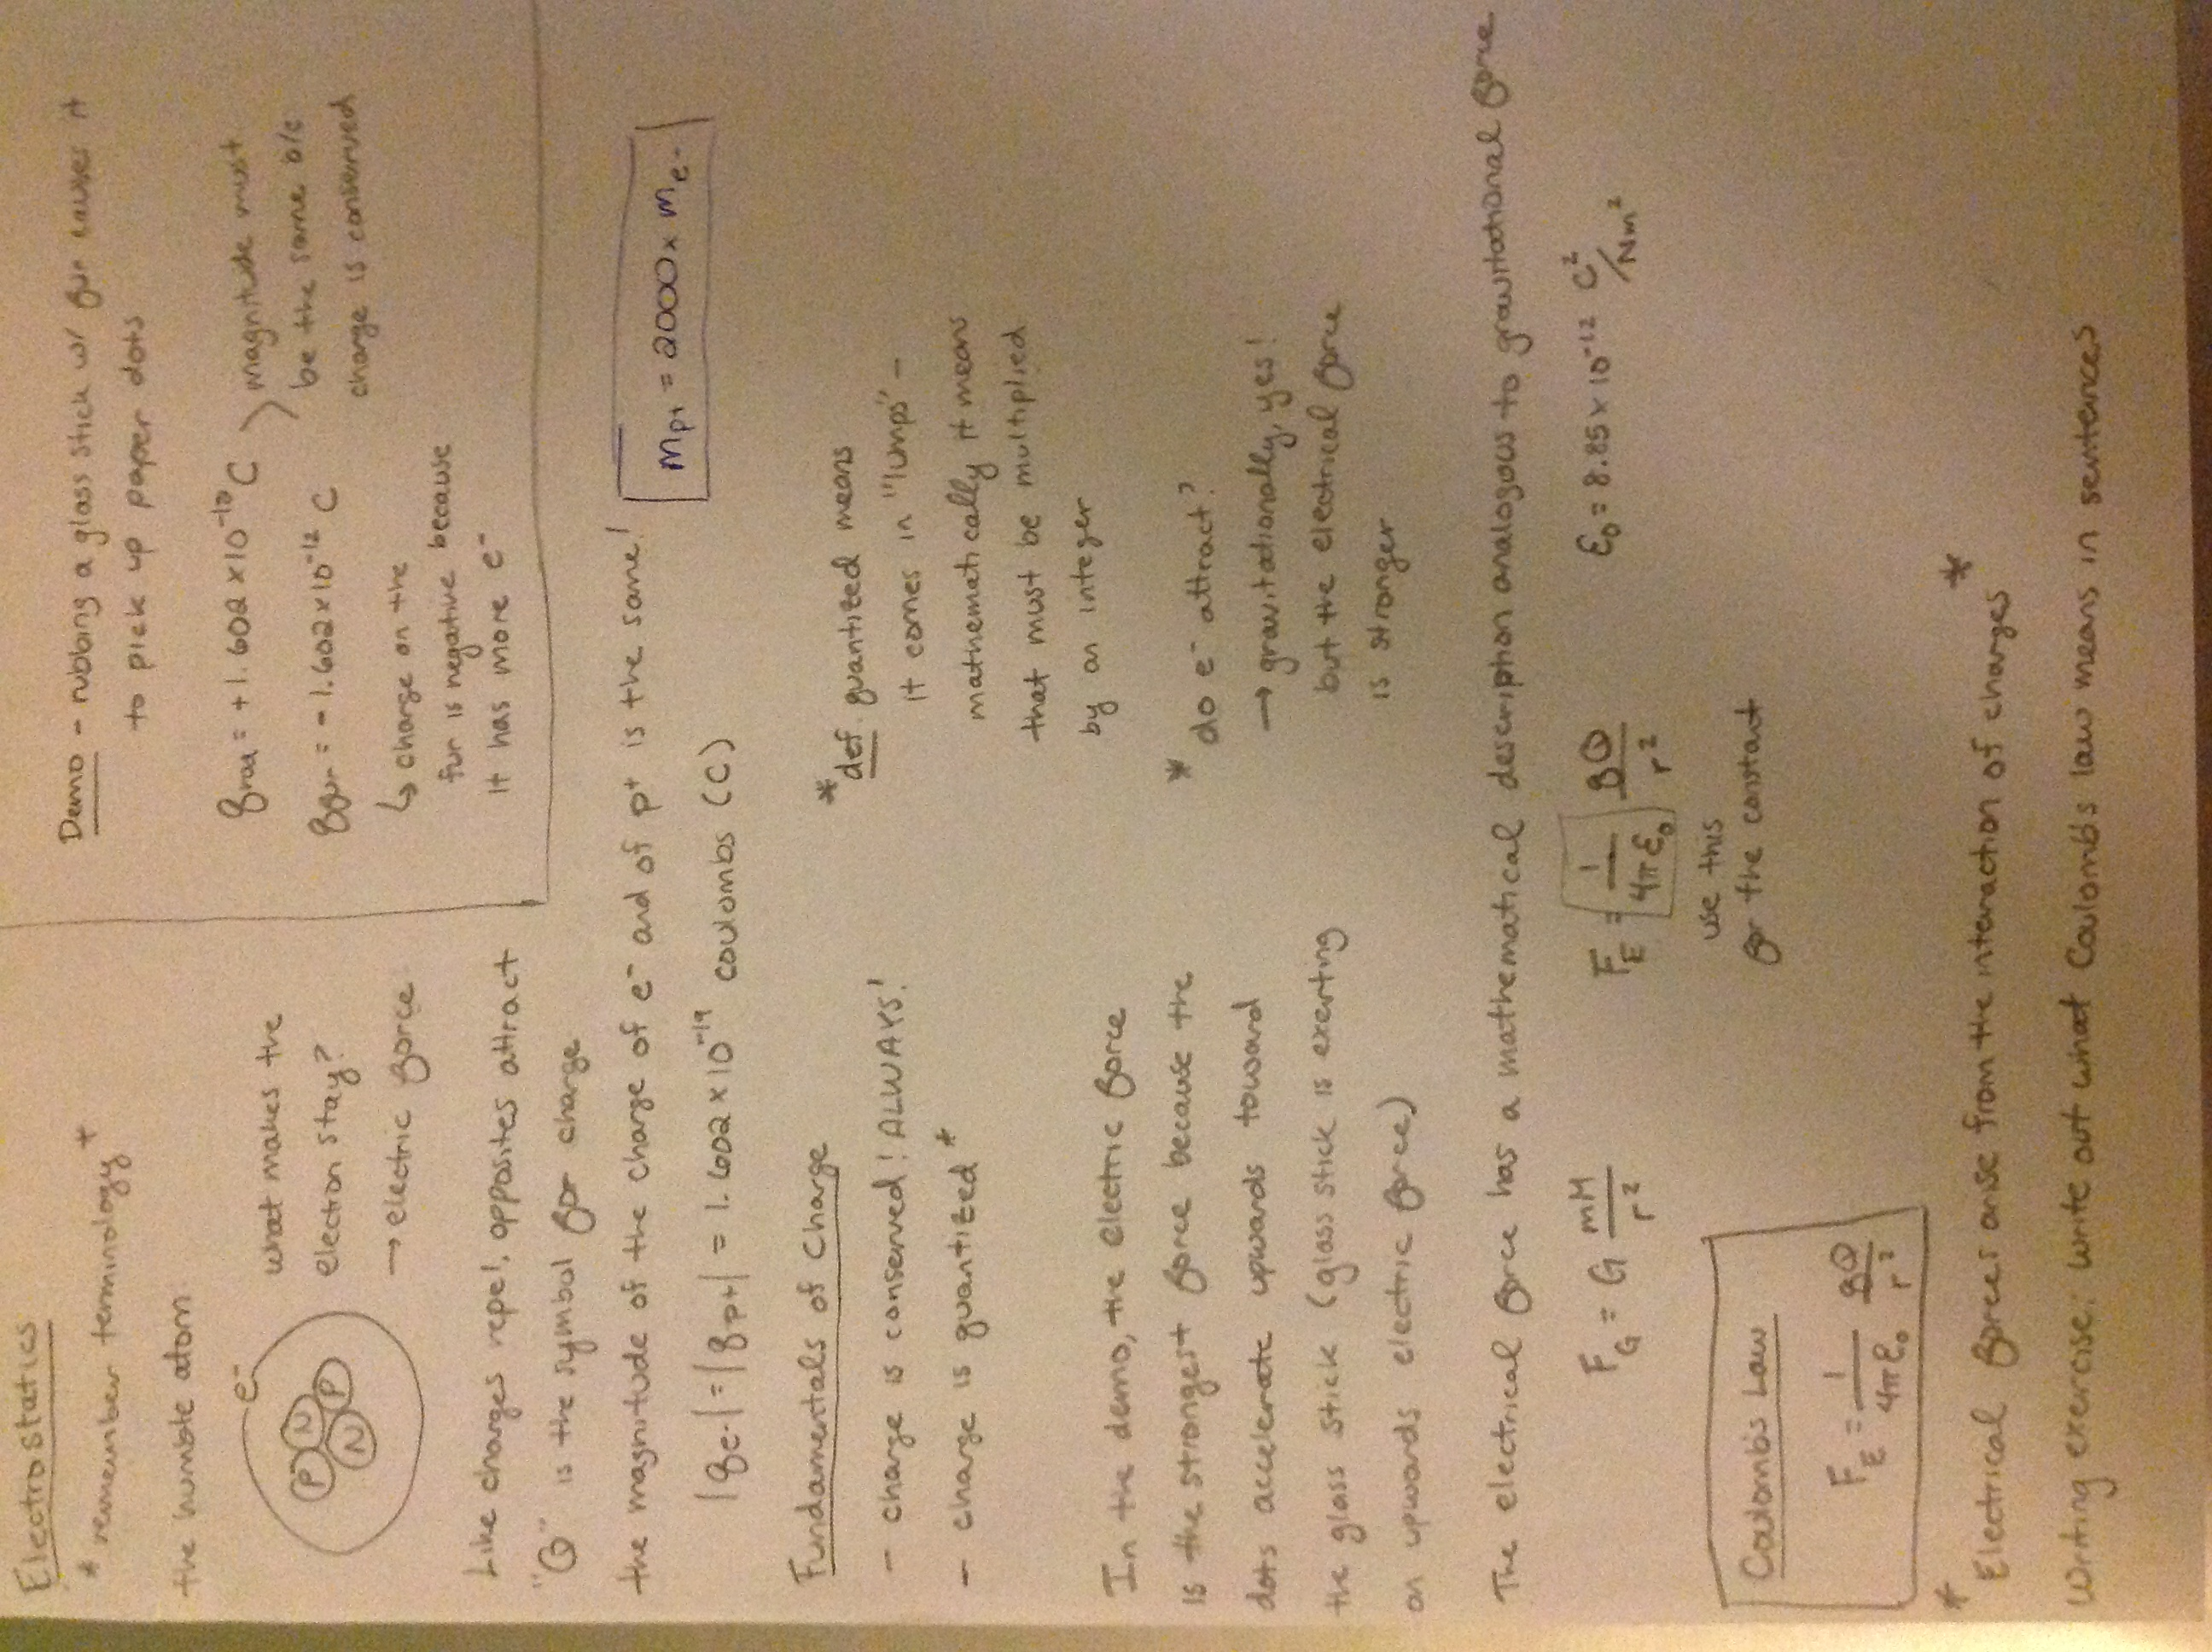 Electrostatics
* remember terminology *
the humble atom:
e⁻
P N
N P
what makes the
electron stay?
→ electric force
Demo - rubbing a glass stick w/ fur causes it
to pick up paper dots
q_rod = +1.602 x 10⁻¹² C
q_fur = -1.602 x 10⁻¹² C
magnitude must
be the same b/c
charge is conserved
↳ charge on the
fur is negative because
it has more e⁻
Like charges repel, opposites attract
"Q" is the symbol for charge
the magnitude of the charge of e⁻ and of p⁺ is the same!
|q_e⁻| = |q_p+| = 1.602 x 10⁻¹⁹ coulombs (C)
m_p+ = 2000 x m_e⁻
Fundamentals of Charge
- charge is conserved! ALWAYS!
- charge is quantized *
* def. quantized means
it comes in "lumps" -
mathematically it means
that must be multiplied
by an integer
In the demo, the electric force
is the strongest force because the
dots accelerate upwards toward
the glass stick (glass stick is exerting
an upwards electric force)
* do e⁻ attract?
→ gravitationally, yes!
but the electrical force
is stronger
The electrical force has a mathematical description analogous to gravitational force
F_G = G mM/r²
F_E = 1/4πε₀ qQ/r²
ε₀ = 8.85 x 10⁻¹² C²/Nm²
use this
for the constant
Coulomb's Law
F_E = 1/4πε₀ qQ/r²
* Electrical forces arise from the interaction of charges *
Writing exercise: write out what Coulomb's law means in sentences